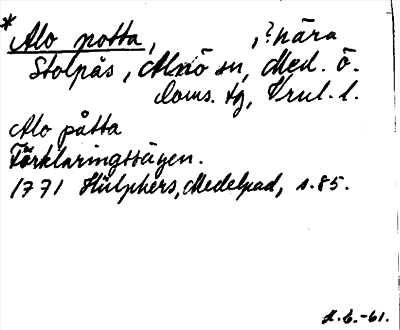 * Alo potta, , ? nära
Stolpås, Alnö sn, Med. ö.
Doms. tg,
Alo påtta
Förklaringssägen.
1771 Hülphers, Medelpad, s. 85.
-61.